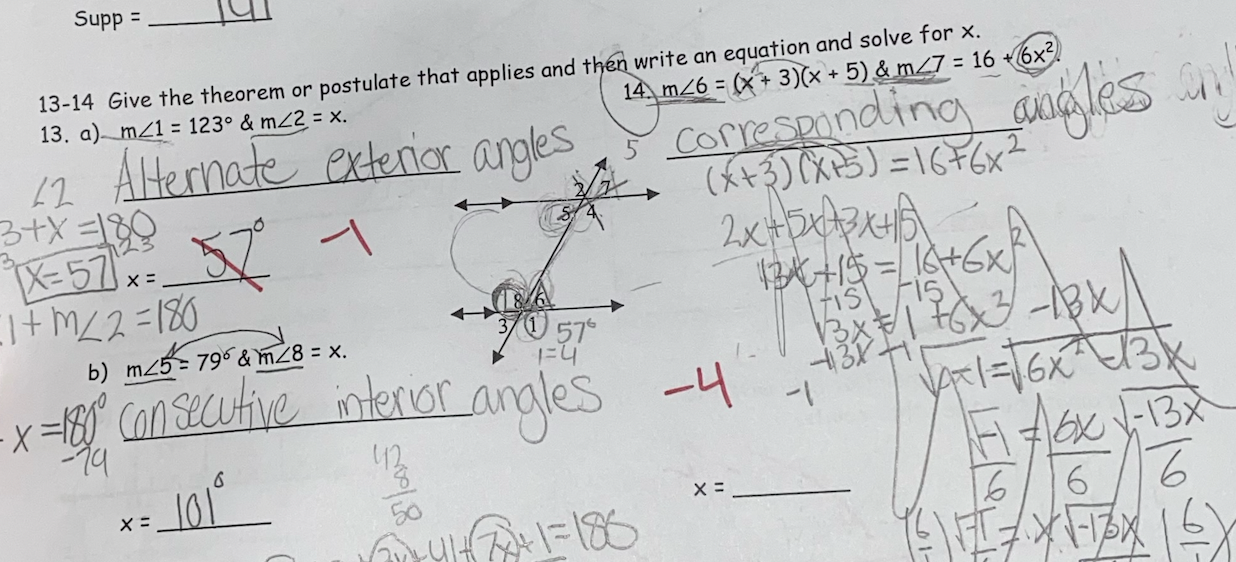 Supp =
13-14 Give the theorem or postulate that applies and then write an equation and solve for x.
13. a) m∠1 = 123° & m∠2 = x.
∠2 Alternate exterior angles
3+x=180
123
x=57
x = 57° -1
1+m∠2=180
b) m∠5 = 79° & m∠8 = x.
x=180° consecutive interior angles
-79
x = 101°
42
8
50
+(7x)+1=186
5
2 7
5 4
8 6
3 1 57°
1=4
14. m∠6 = (x + 3)(x + 5) & m∠7 = 16 + 6x²
corresponding angles
(x+3)(x+5)=16+6x²
2x+5x+3x+15
13x+15=16+6x²
-15 -15
13x=1+6x²
-13x -13x
-4 -1
√-1=√6x²-13x
√-1 = 6x √-13x
6 6 6
x =